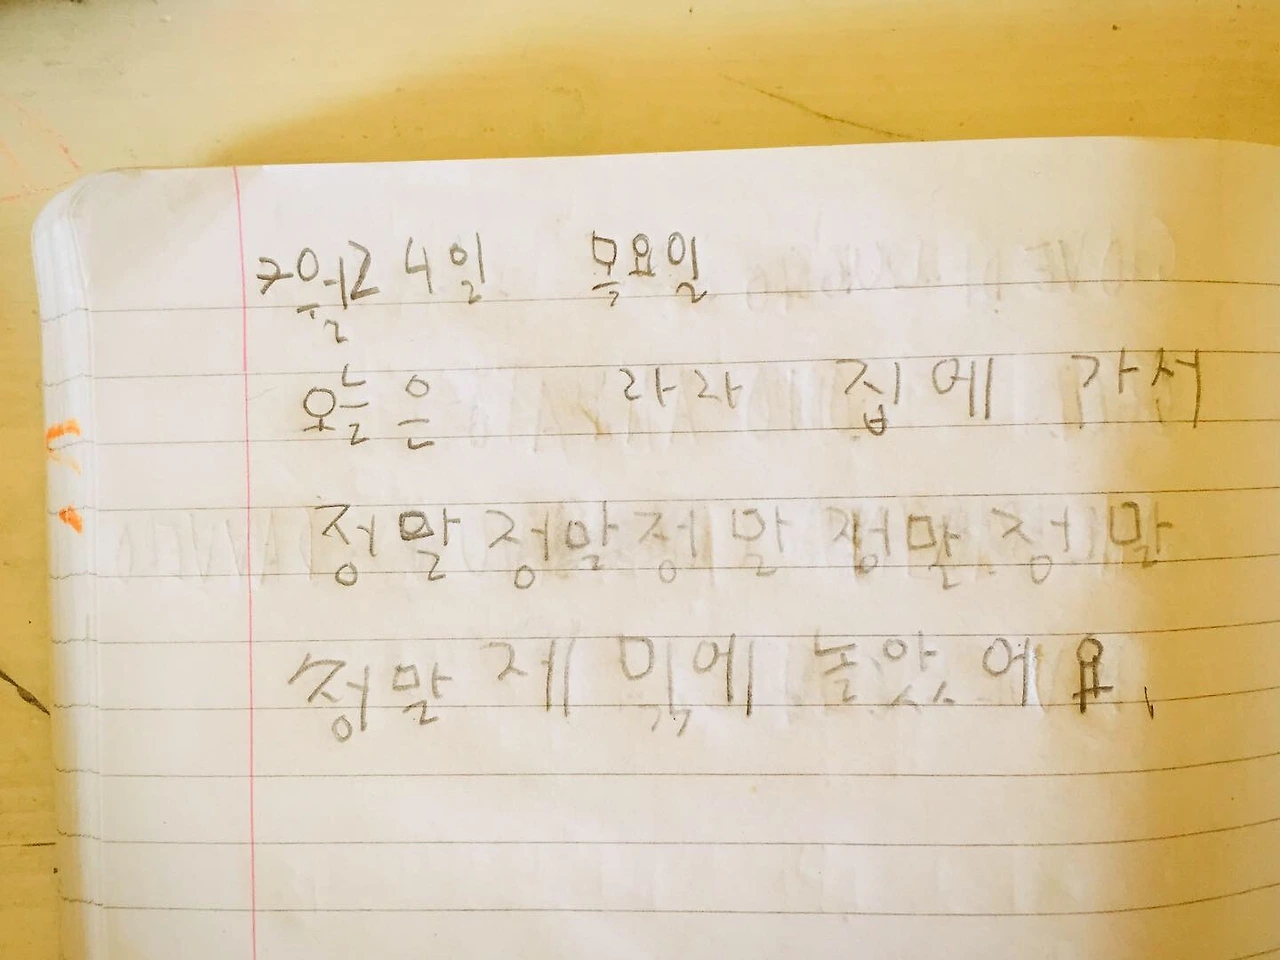 7월24일 목요일
오늘은 라라 집에 가서
정말정말정말정말정말
정말 제밌에 놀앗어요.